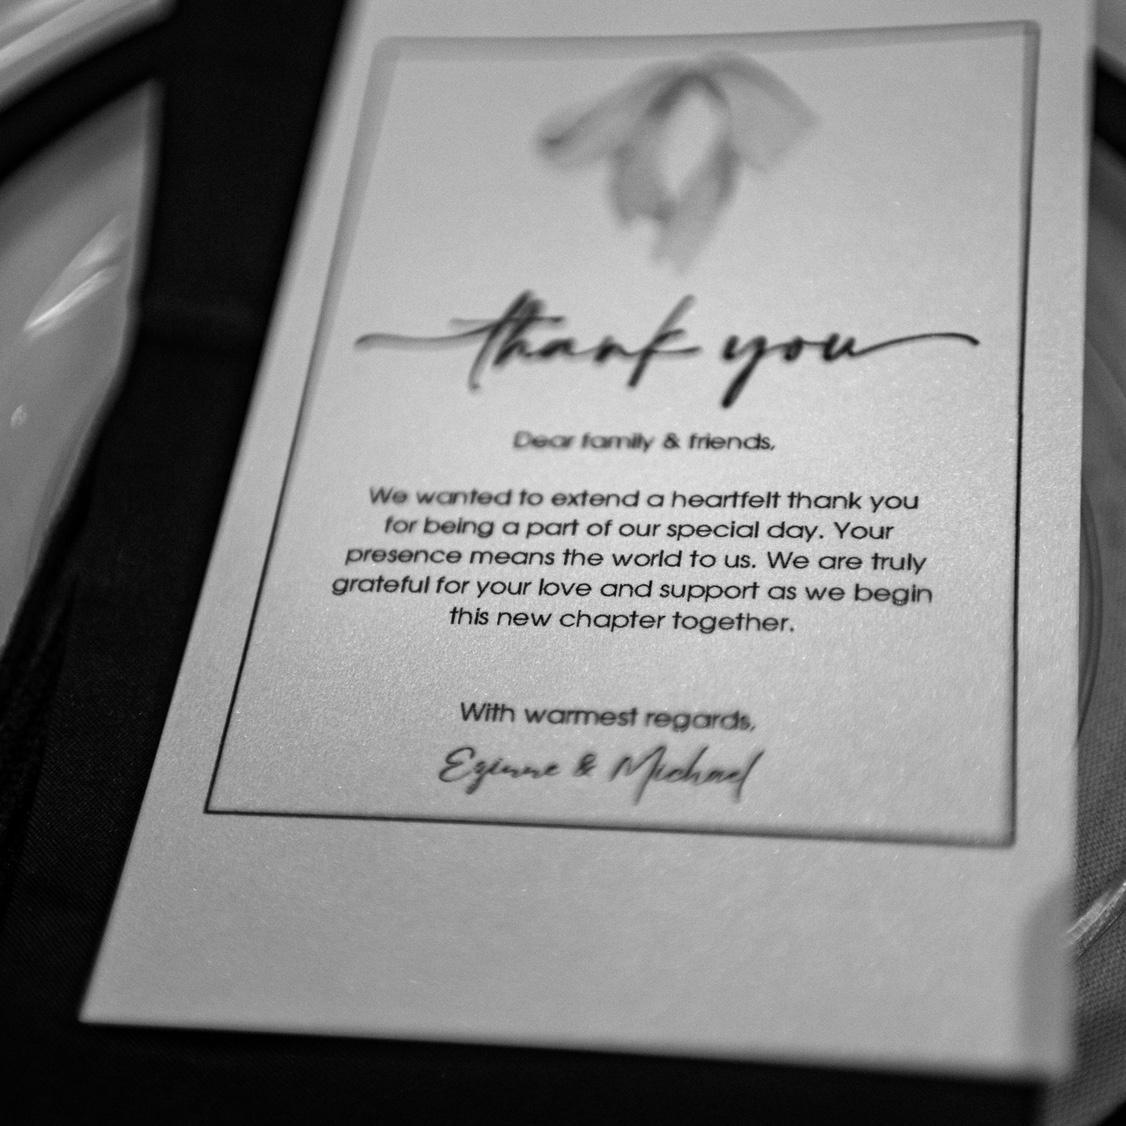 thank you
Dear family & friends,
We wanted to extend a heartfelt thank you
for being a part of our special day. Your
presence means the world to us. We are truly
grateful for your love and support as we begin
this new chapter together.
With warmest regards,
Ezinne & Michael